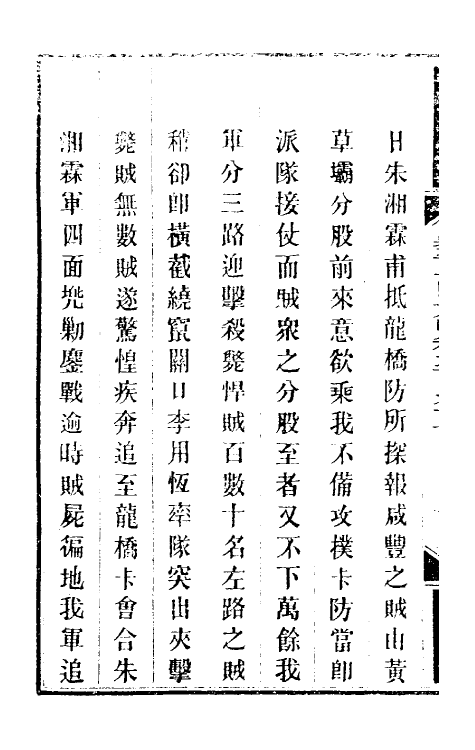 日朱湘霖甫抵龍橋防所探報咸豐之賊由黃
草壩分股前來意欲乘我不備攻撲卡防當卽
派隊接仗而賊衆之分股至者又不下萬餘我
軍分三路迎擊殺斃悍賊百數十名左路之賊
稍卻卽橫截繞竄關口李用恆率隊突出夾擊
斃賊無數賊遂驚惶疾奔追至龍橋卡會合朱
湘霖軍四面兠勦鏖戰逾時賊屍徧地我軍追